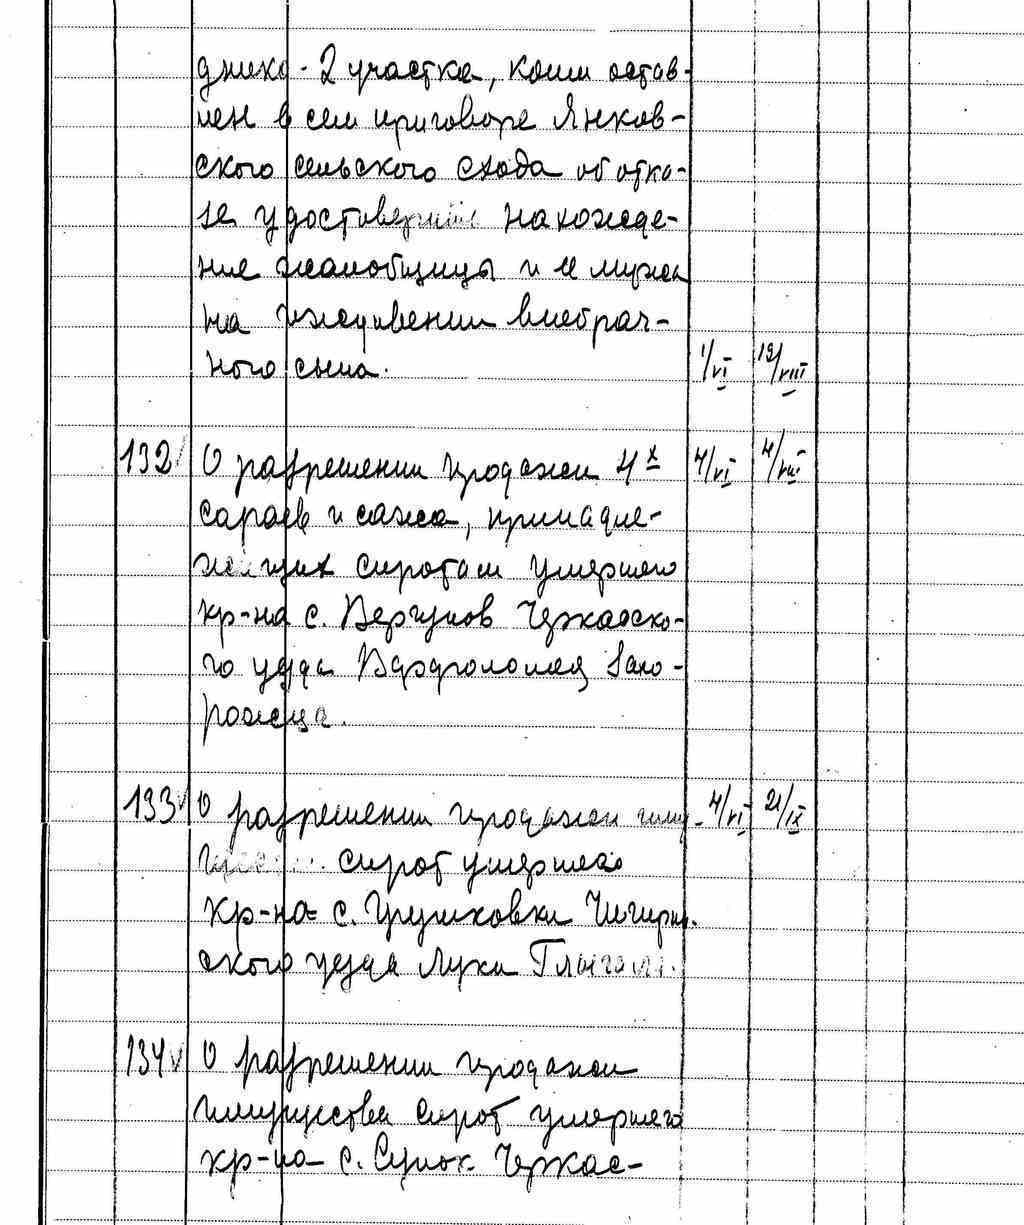 дника - 2 участка, коим остав-
лен в сем приговоре Янков-
ского сельского схода об отка-
зе удостоверить нахожде-
ние жалобщицы и ее мужа
на иждивении внебрач-
ного сына. 1/VI 19/VIII
132 О разрешении продажи 4х 4/VI 4/VIII
сараев и сажа, принадле-
жащих сиротам умершего
кр-на с. Вергунов Черкасско-
го уезда Варфоломея Запо-
рожца.
133 О разрешении продажи иму- 4/VI 21/IX
сирот умершего
кр-на с. Грушковки Чигирин-
ского уезда Луки
134 О разрешении продажи
имущества сирот умершего
кр-на с. Сунок Черкас-